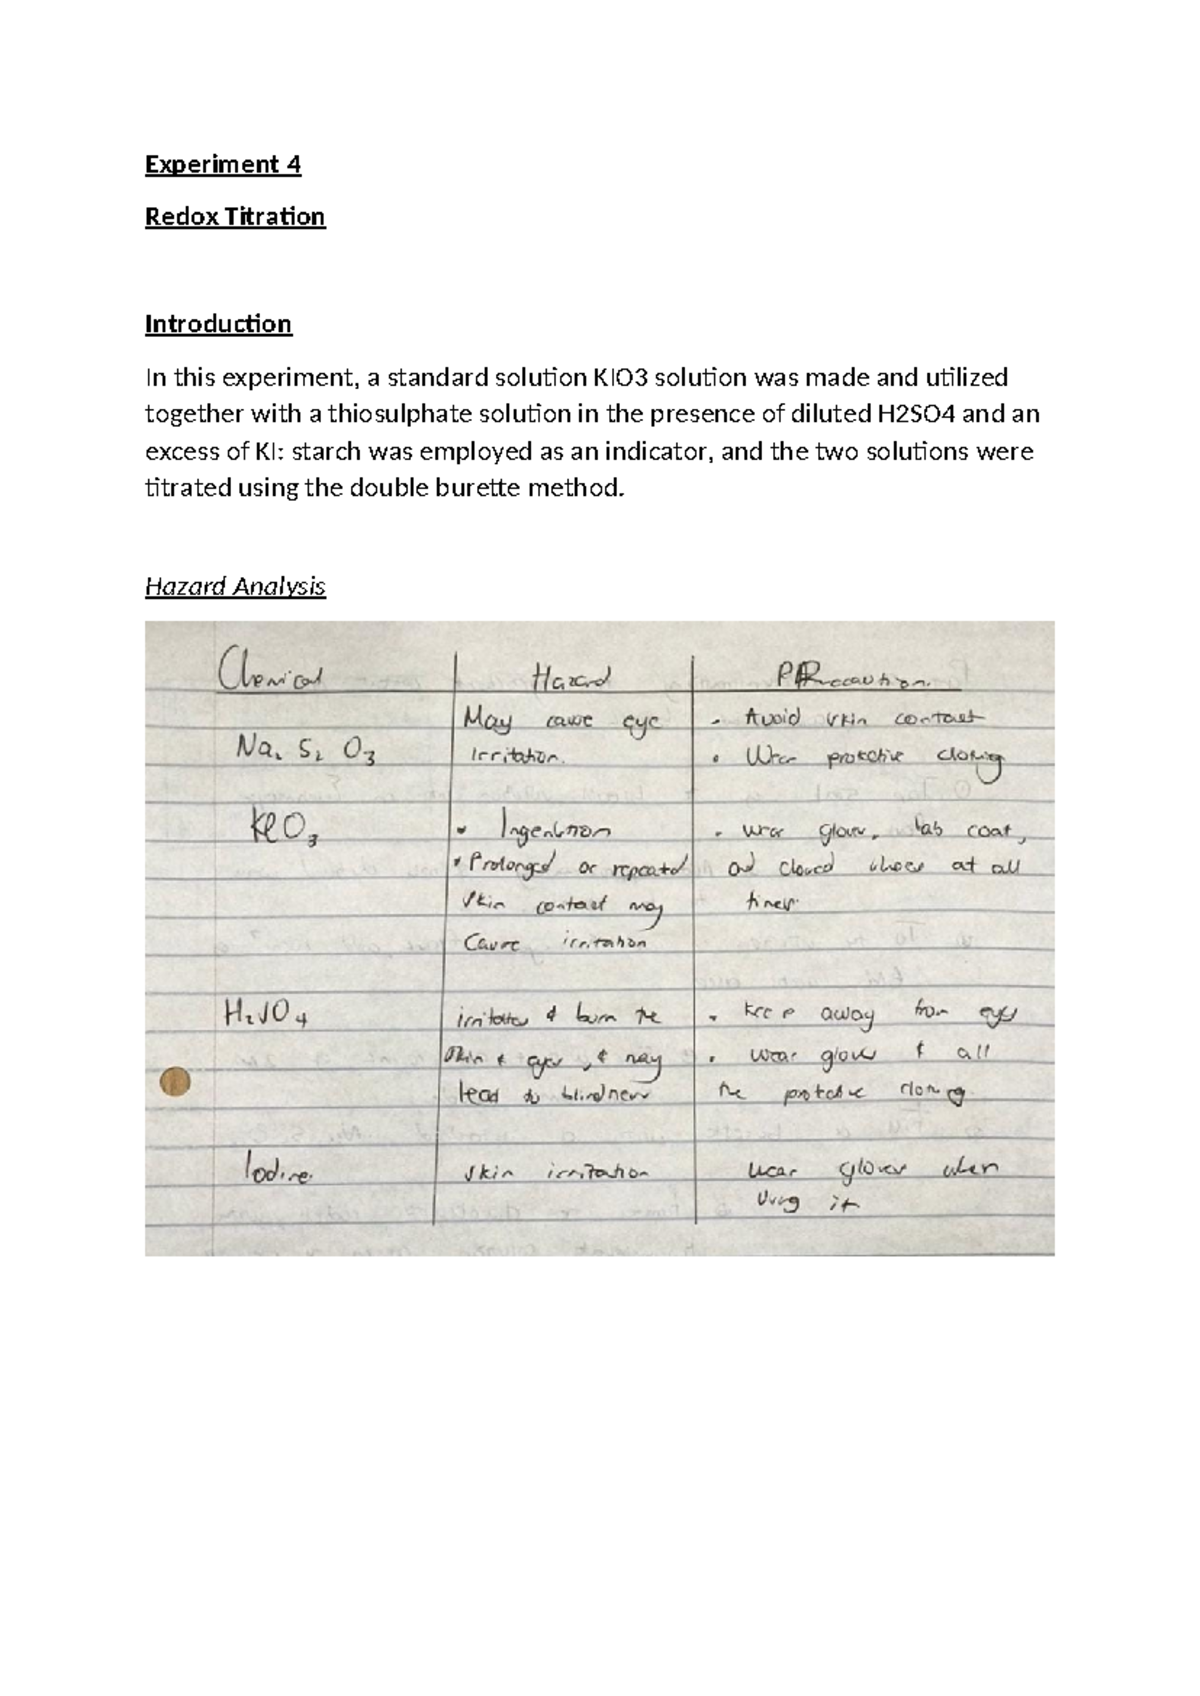 Experiment 4
Redox Titration
Introduction
In this experiment, a standard solution KIO3 solution was made and utilized
together with a thiosulphate solution in the presence of diluted H2SO4 and an
excess of KI: starch was employed as an indicator, and the two solutions were
titrated using the double burette method.
Hazard Analysis
Chemical Hazard Precaution
May cause eye • Avoid skin contact
Na2 S2 O3 Irritation. • Wear protective
• wear gloves, lab coat,
• Prolonged or repeated and closed shoes at all
skin contact may times.
Cause irritation
H2SO4 & burn the • keep away from eyes
skin & eyes, & may • wear gloves & all
lead to blindness the protective
Iodine. skin irritation wear gloves when
using it